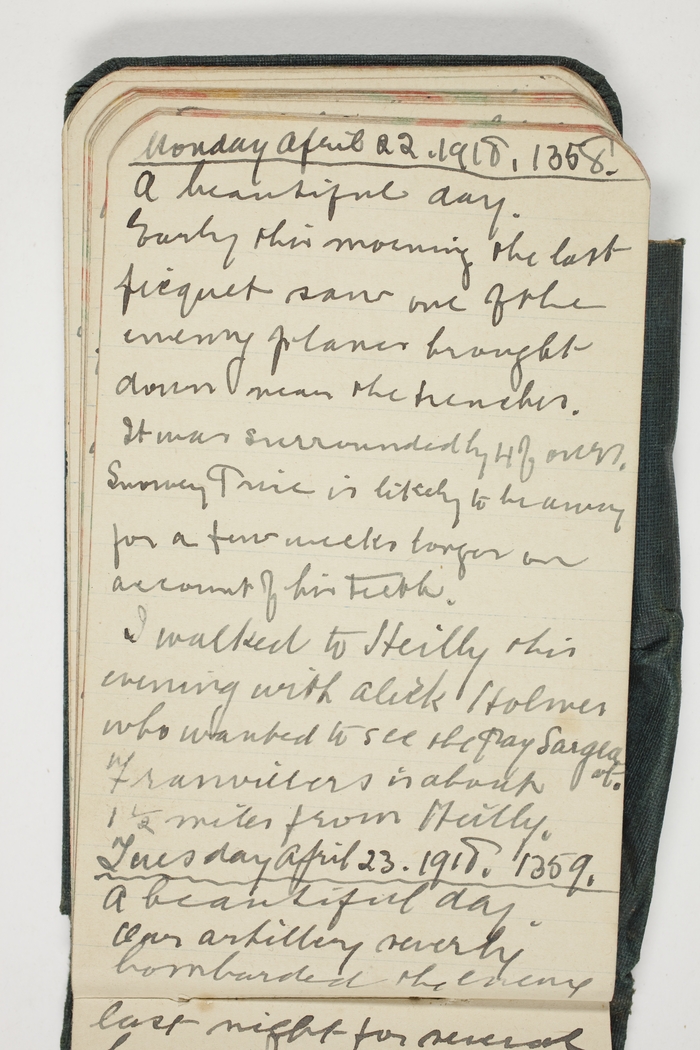 Monday April 22. 1918. 1358.
A beautiful day.
Early this morning the last
picquet saw one of the
enemy planes brought
down near the trenches.
It was surrounded by 4 of ours.
Snowey is likely to be away
for a few weeks longer on
account of his teeth.
I walked to Heilly this
evening with Alick Holmes
who wanted to see the Pay Sargeant.
Franvillers is about
1 ½ miles from Heilly.
Tuesday April 23. 1918. 1359.
A beautiful day.
Our artillery severly
bombarded the enemy
last night for several